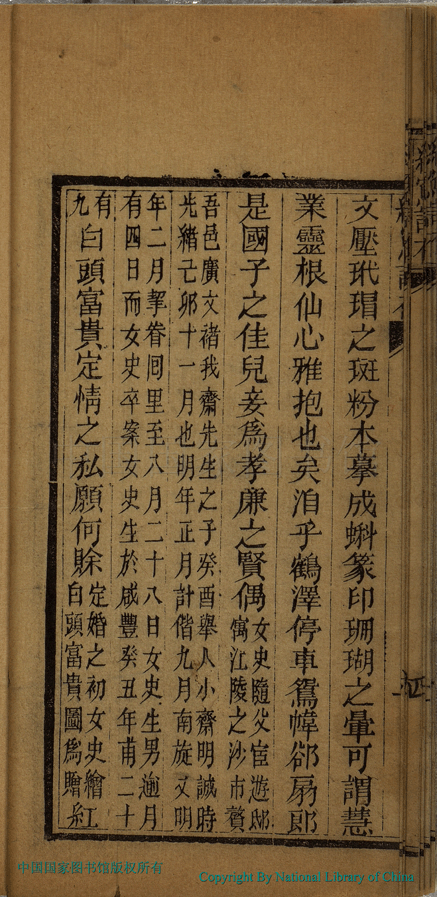 文壓玳瑁之斑粉本摹成蝌篆印珊瑚之暈可謂慧
業靈根仙心雅抱也矣洎乎鶴澤停車鴛幃郤扇郎
是國子之佳兒妾爲孝廉之賢偶
女史隨父宦遊邸
寓江陵之沙市贅
吾邑廣文褚我齋先生之子癸酉舉人小齋明誠時
光緒己卯十一月也明年正月計偕九月南旋又明
年二月挈眷囘里至八月二十八日女史生男逾月
有四日而女史卒案女史生於咸豐癸丑年甫二十
有
九
白頭富貴定情之私願何賒
定婚之初女史繪
白頭富貴圖爲贈
紅
中国国家图书馆版权所有
Copyright By National Library of China